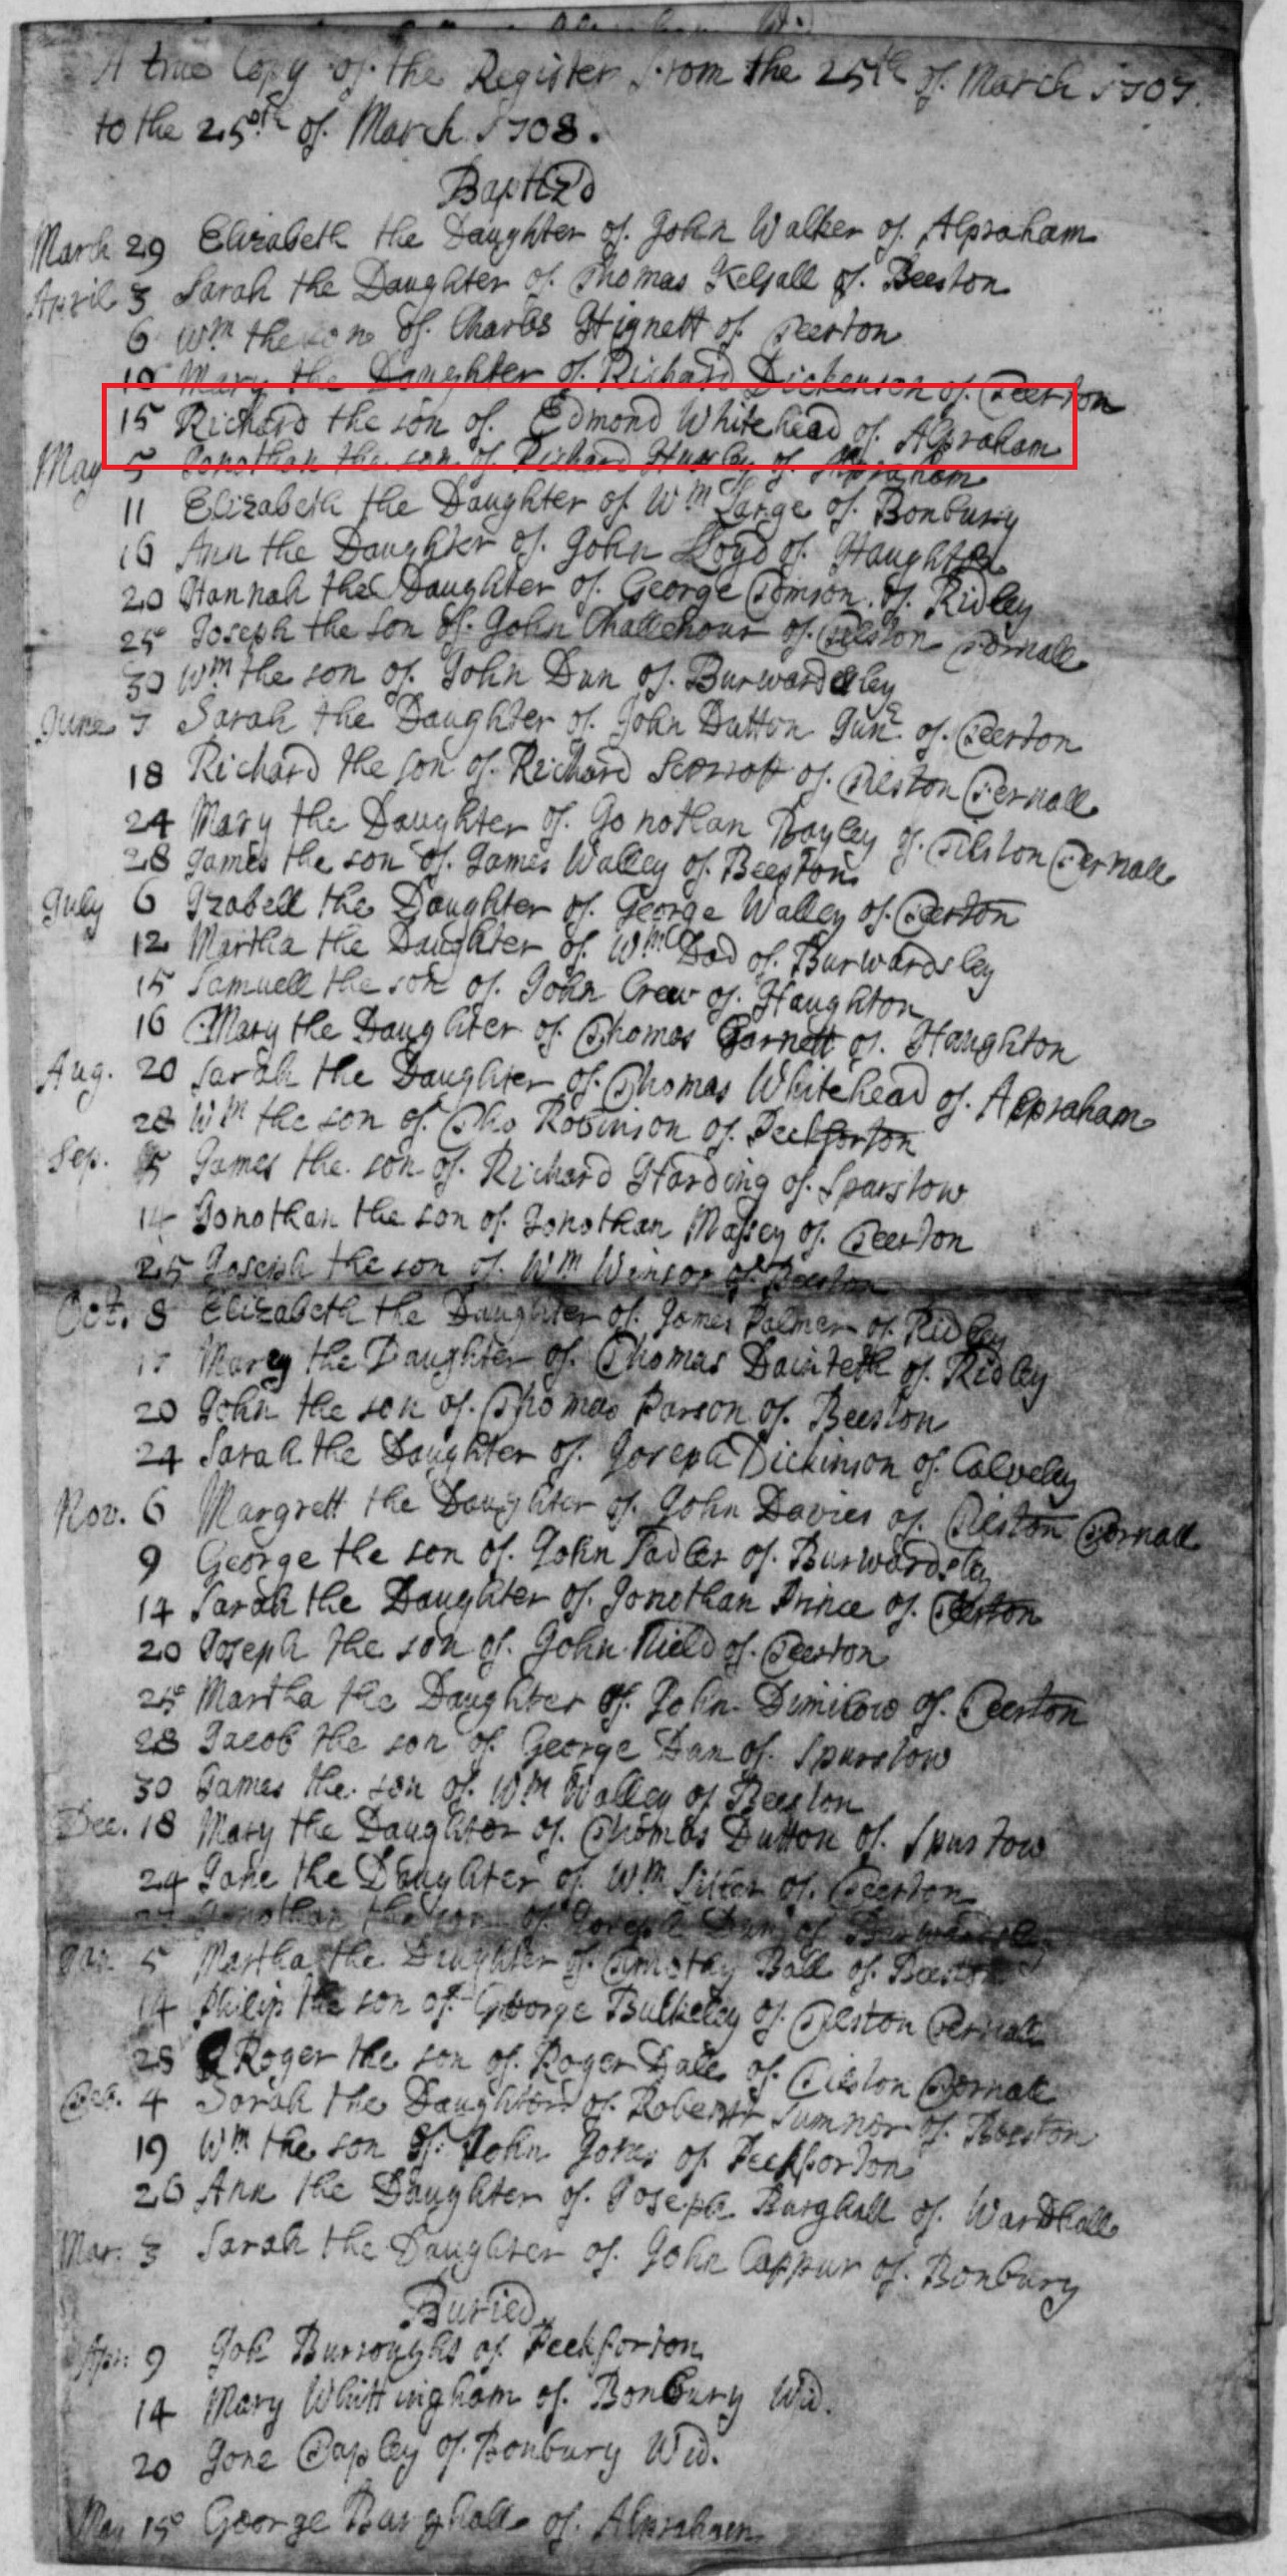 A true Copy of the Register from the 25th of March 1707
to the 25th of March 1708.
Baptiz'd
March 29 Elizabeth the Daughter of John Walker of Alpraham
April 3 Sarah the Daughter of Thomas Kelsall of Beeston
6 Wm the son of Charles Hignett of Teerton
Mary the Daughter of Richard Dickenson of Teerton
15 Richard the son of Edmond Whitehead of Alpraham
May 5 Jonothan the son of Richard Huxley of Alpraham
11 Elizabeth the Daughter of Wm Large of Bonbury
16 Ann the Daughter of John Loyd of Haughton
20 Hannah the Daughter of George Tomson of Ridley
25 Joseph the son of John Challenour of Tilston Fornall
30 Wm the son of John Dun of Burwardsley
June 7 Sarah the Daughter of John Dutton Junr of Teerton
18 Richard the son of Richard of Tilston Fernall
24 Mary the Daughter of Jonothan Bayley of Tilston Fernall
28 James the son of James Walley of Beeston
July 6 Izabell the Daughter of George Walley of Teerton
12 Martha the Daughter of Wm Dod of Burwardsley
15 Samuell the son of John Crew of Haughton
16 Mary the Daughter of Thomas Garnett of Haughton
Aug. 20 Sarah the Daughter of Thomas Whitehead of Alpraham
28 Wm the son of Tho Robinson of Peckforton
Sep. 5 James the son of Richard Harding of Sparstow
14 Jonothan the son of Jonothan Massey of Teerton
25 Joseph the son of Wm Winsor of Beeston
Oct. 8 Elizabeth the Daughter of James Palmer of Ridley
Marey the Daughter of Thomas Dainteth of Ridley
20 John the son of Thomas Parson of Beeston
24 Sarah the Daughter of Joseph Dickinson of Calveley
Nov. 6 Margrett the Daughter of John Davies of Tilston Fornall
9 George the son of John Sadler of Burwardsley
14 Sarah the Daughter of Jonothan Prince of Teerton
20 Joseph the son of John Nield of Teerton
25 Martha the Daughter of John Dimilow of Teerton
28 Jacob the son of George Dan of Spurstow
30 James the son of Wm Walley of Beeston
Dec. 18 Mary the Daughter of Thomas Dutton of Spurstow
24 Jane the Daughter of Wm of Teerton
Jonothan the son of Joseph Dun of Burwardsley
Jan. 5 Martha the Daughter of Timothy Ball of Beeston
14 Philip the son of George Bulkeley of Tilston Fernall
28 Roger the son of Roger Dale of Tilston Fornall
Feb. 4 Sarah the Daughter of Robert Sumner of Beeston
19 Wm the son of John Jones of Peckforton
26 Ann the Daughter of Joseph Burghall of Wardhall
Mar. 3 Sarah the Daughter of John Cappur of Bonbury
Buried
Apr: 9 Job Burroughs of Peckforton
14 Mary Whittingham of Bonbury Wid.
20 Jone Tapley of Bonbury Wid.
May 15 George Burghall of Alpraham